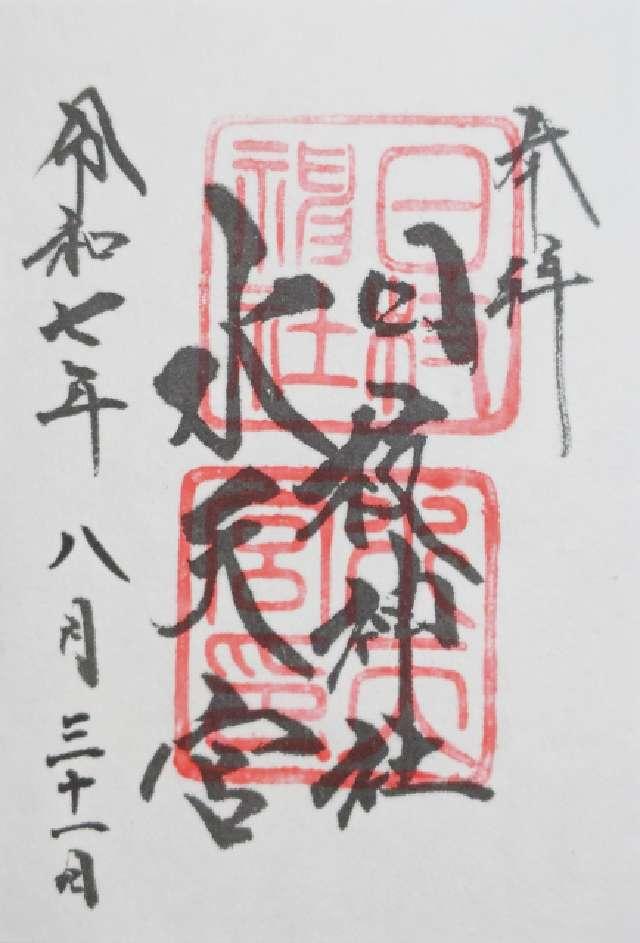 奉拝
日枝神社
水天宮
令和七年 八月三十一日
日枝
神社
水天
宮印